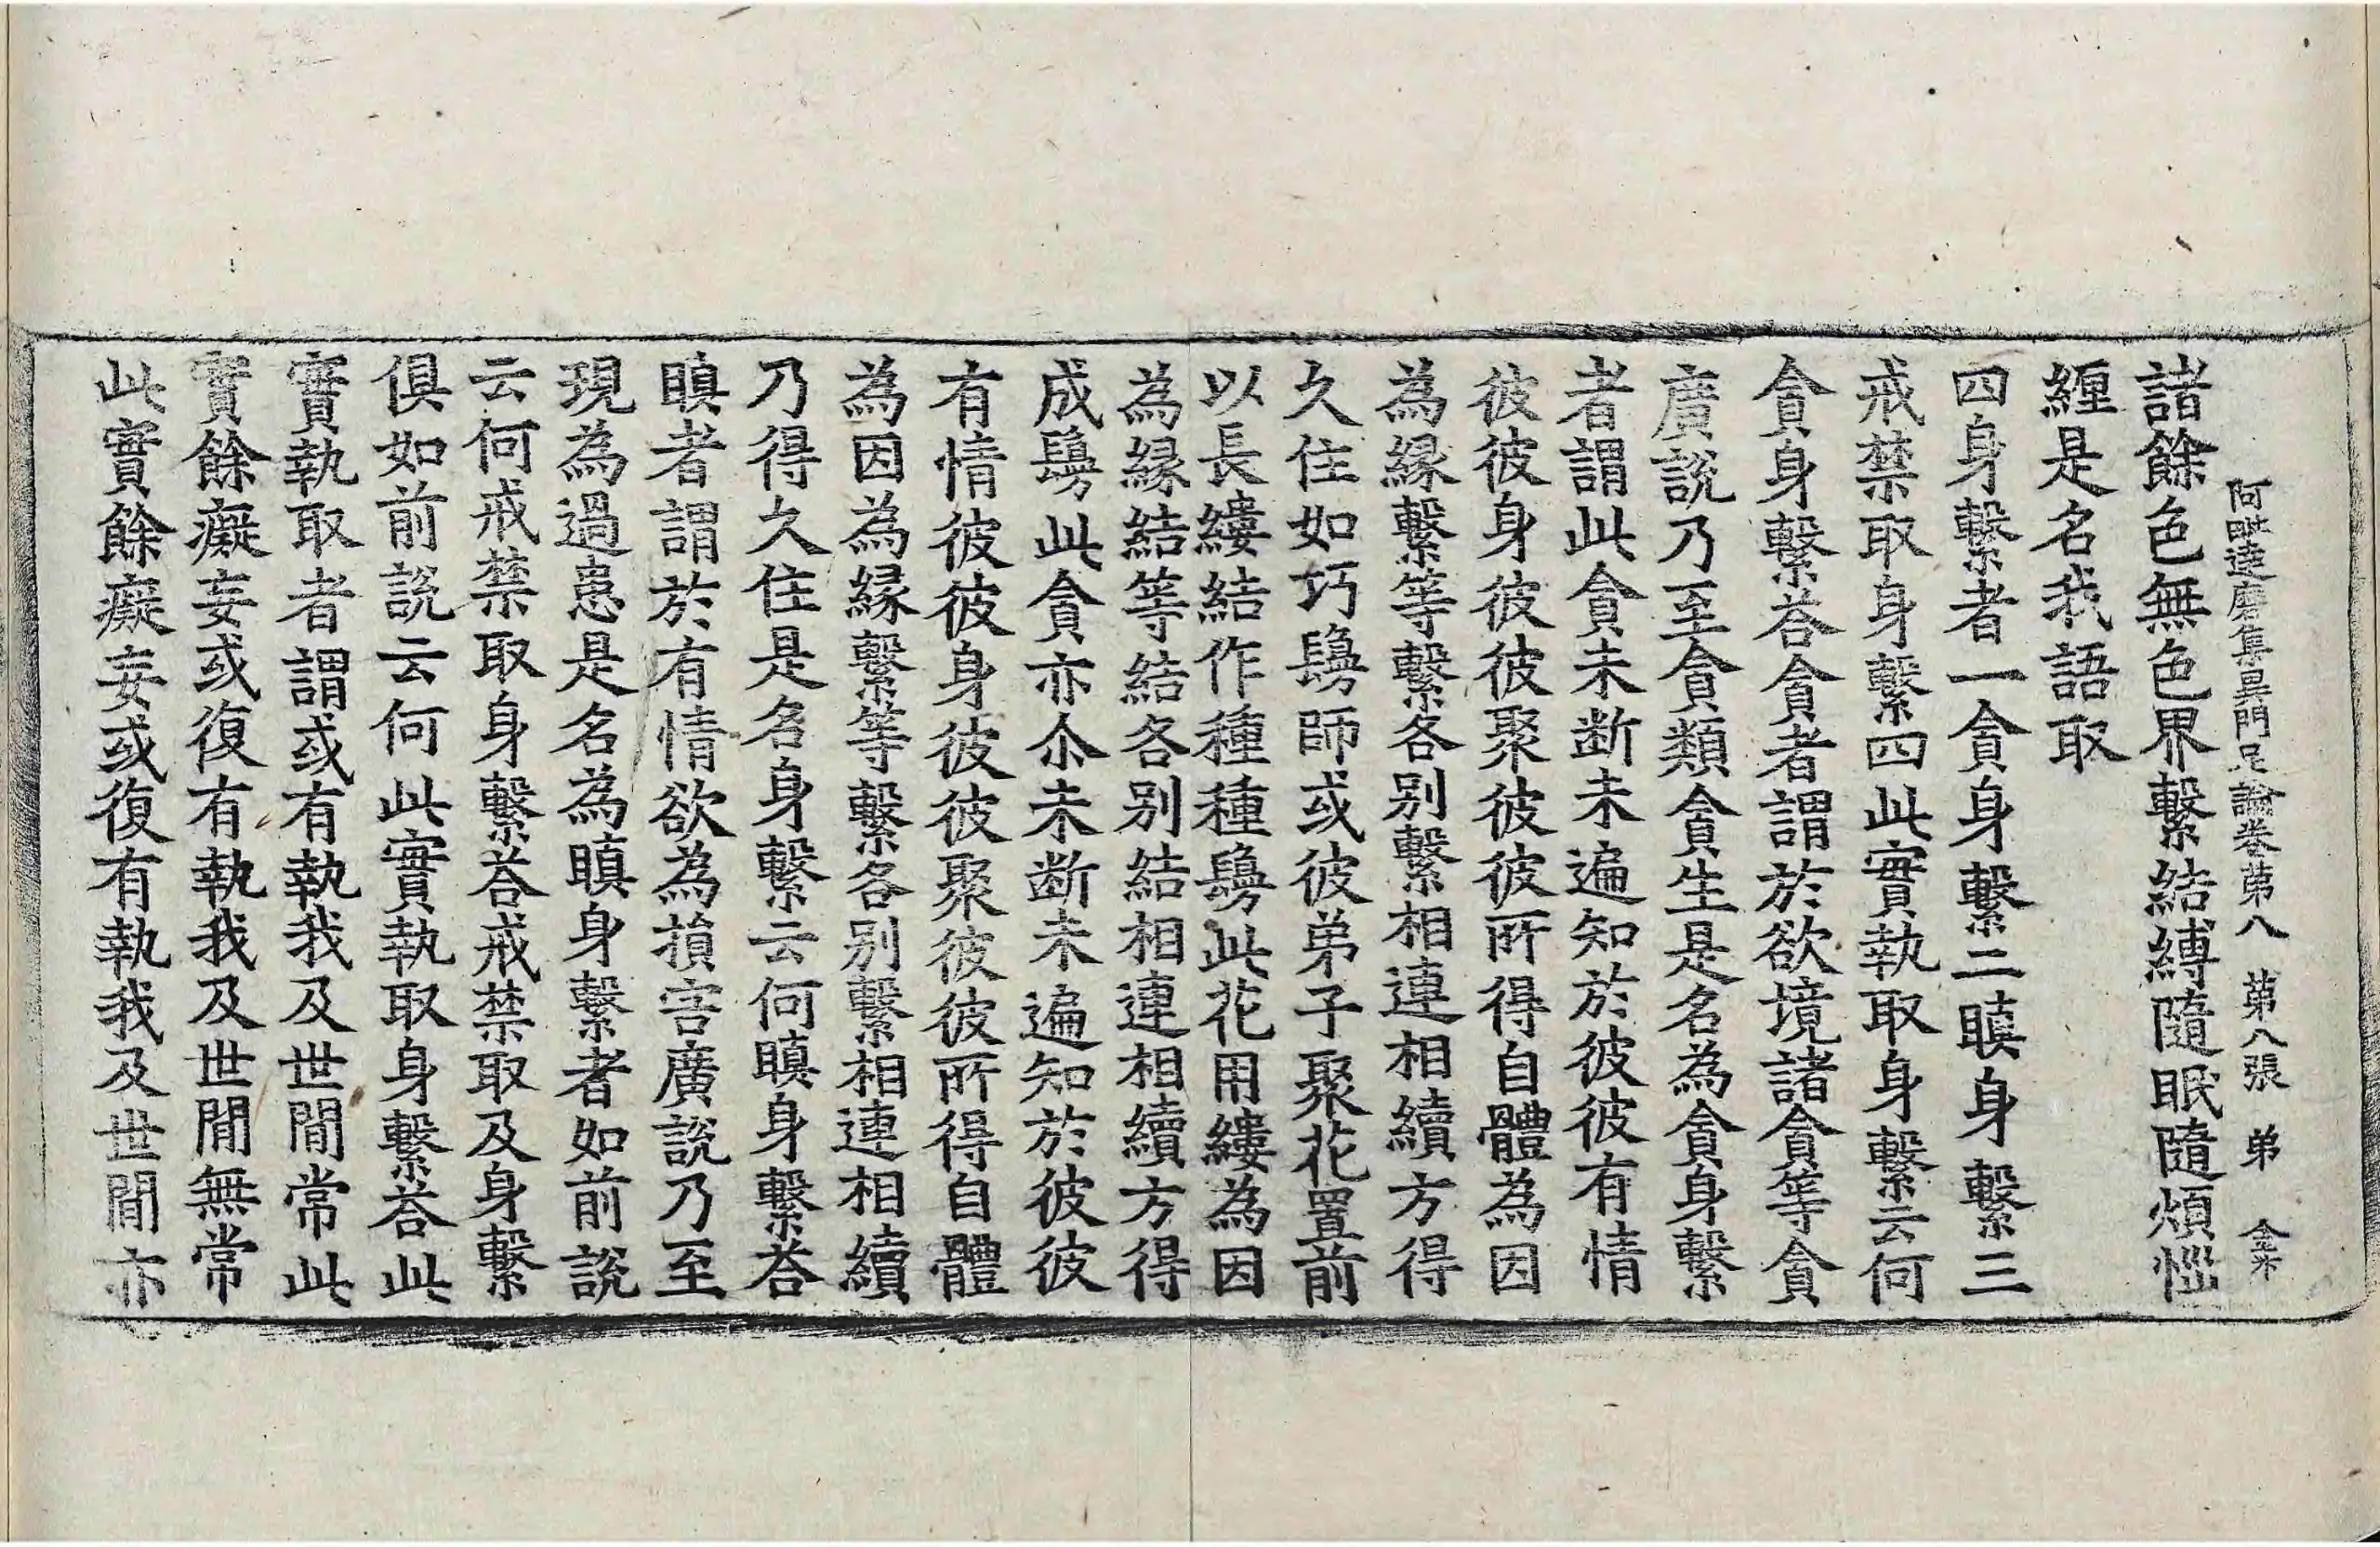 阿毗達磨集異門足論卷第八 第八張 弟
諸餘色無色界繫結縛隨眠隨煩惱
纏是名我語取
四身繫者一貪身繫二瞋身繫三
戒禁取身繫四此實執取身繫云何
貪身繫荅貪者謂於欲境諸貪等貪
廣說乃至貪類貪生是名為貪身繫
者謂此貪未断未遍知於彼彼有情
彼彼身彼彼聚彼彼所得自體為因
為緣繫等繫各别繫相連相續方得
久住如巧鬘師或彼弟子聚花置前
以長縷結作種種鬘此花用縷為因
為緣結等結各别結相連相續方得
成鬘此貪亦尒未断未遍知於彼彼
有情彼彼身彼彼聚彼彼所得自體
為因為緣繫等繫各别繫相連相續
乃得久住是名身繫云何瞋身繫荅
瞋者謂於有情欲為損害廣說乃至
現為過患是名為瞋身繫者如前說
云何戒禁取身繫荅戒禁取及身繫
俱如前說云何此實執取身繫荅此
實執取者謂或有執我及世間常此
實餘癡妄或復有執我及世間無常
此實餘癡妄或復有執我及世間亦